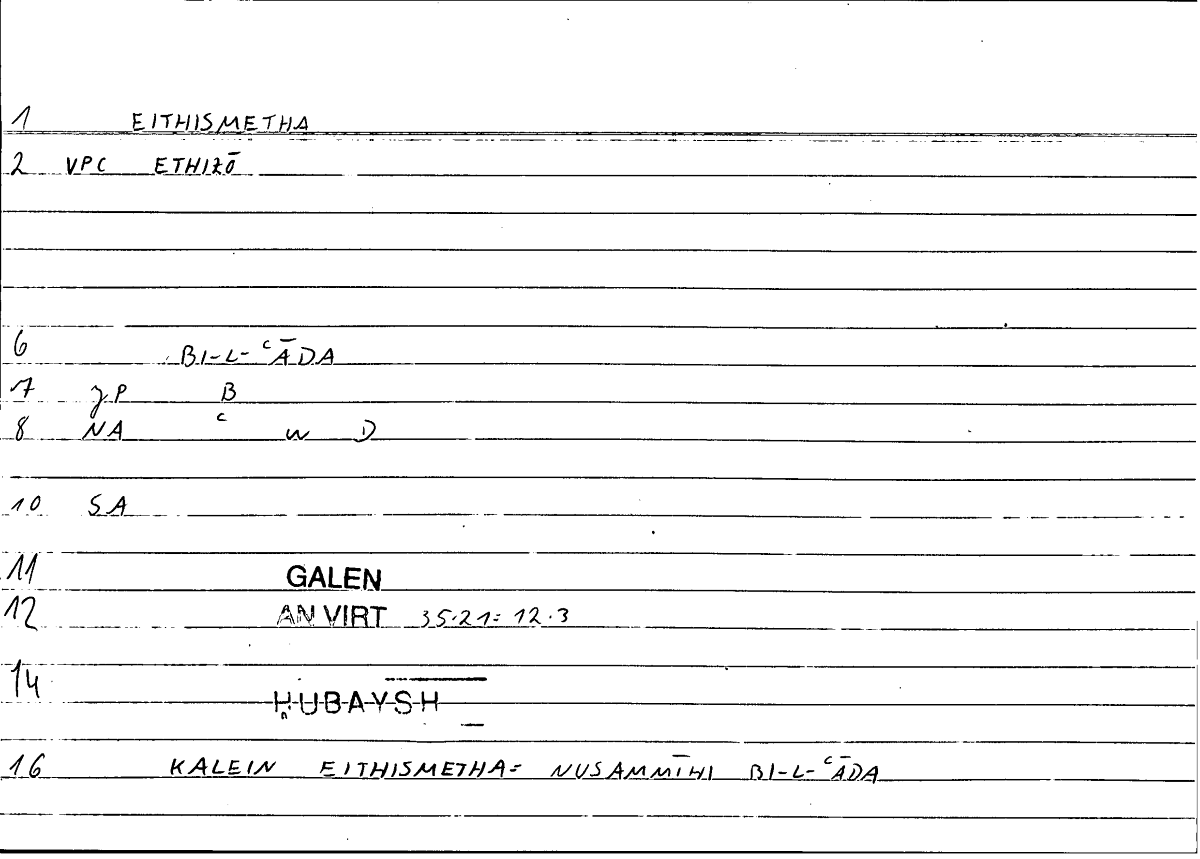 1 EITHISMETHA
2 VPC ETHIZŌ
6 BI-L-ᶜĀDA
7 P B
8 NA ᶜ w D
10 SA
11 GALEN
12 AN VIRT 35.21= 12.3
14 ḤUBAYSH
16 KALEIN EITHISMETHA= NUSAMMĪHI BI-L-ᶜĀDA